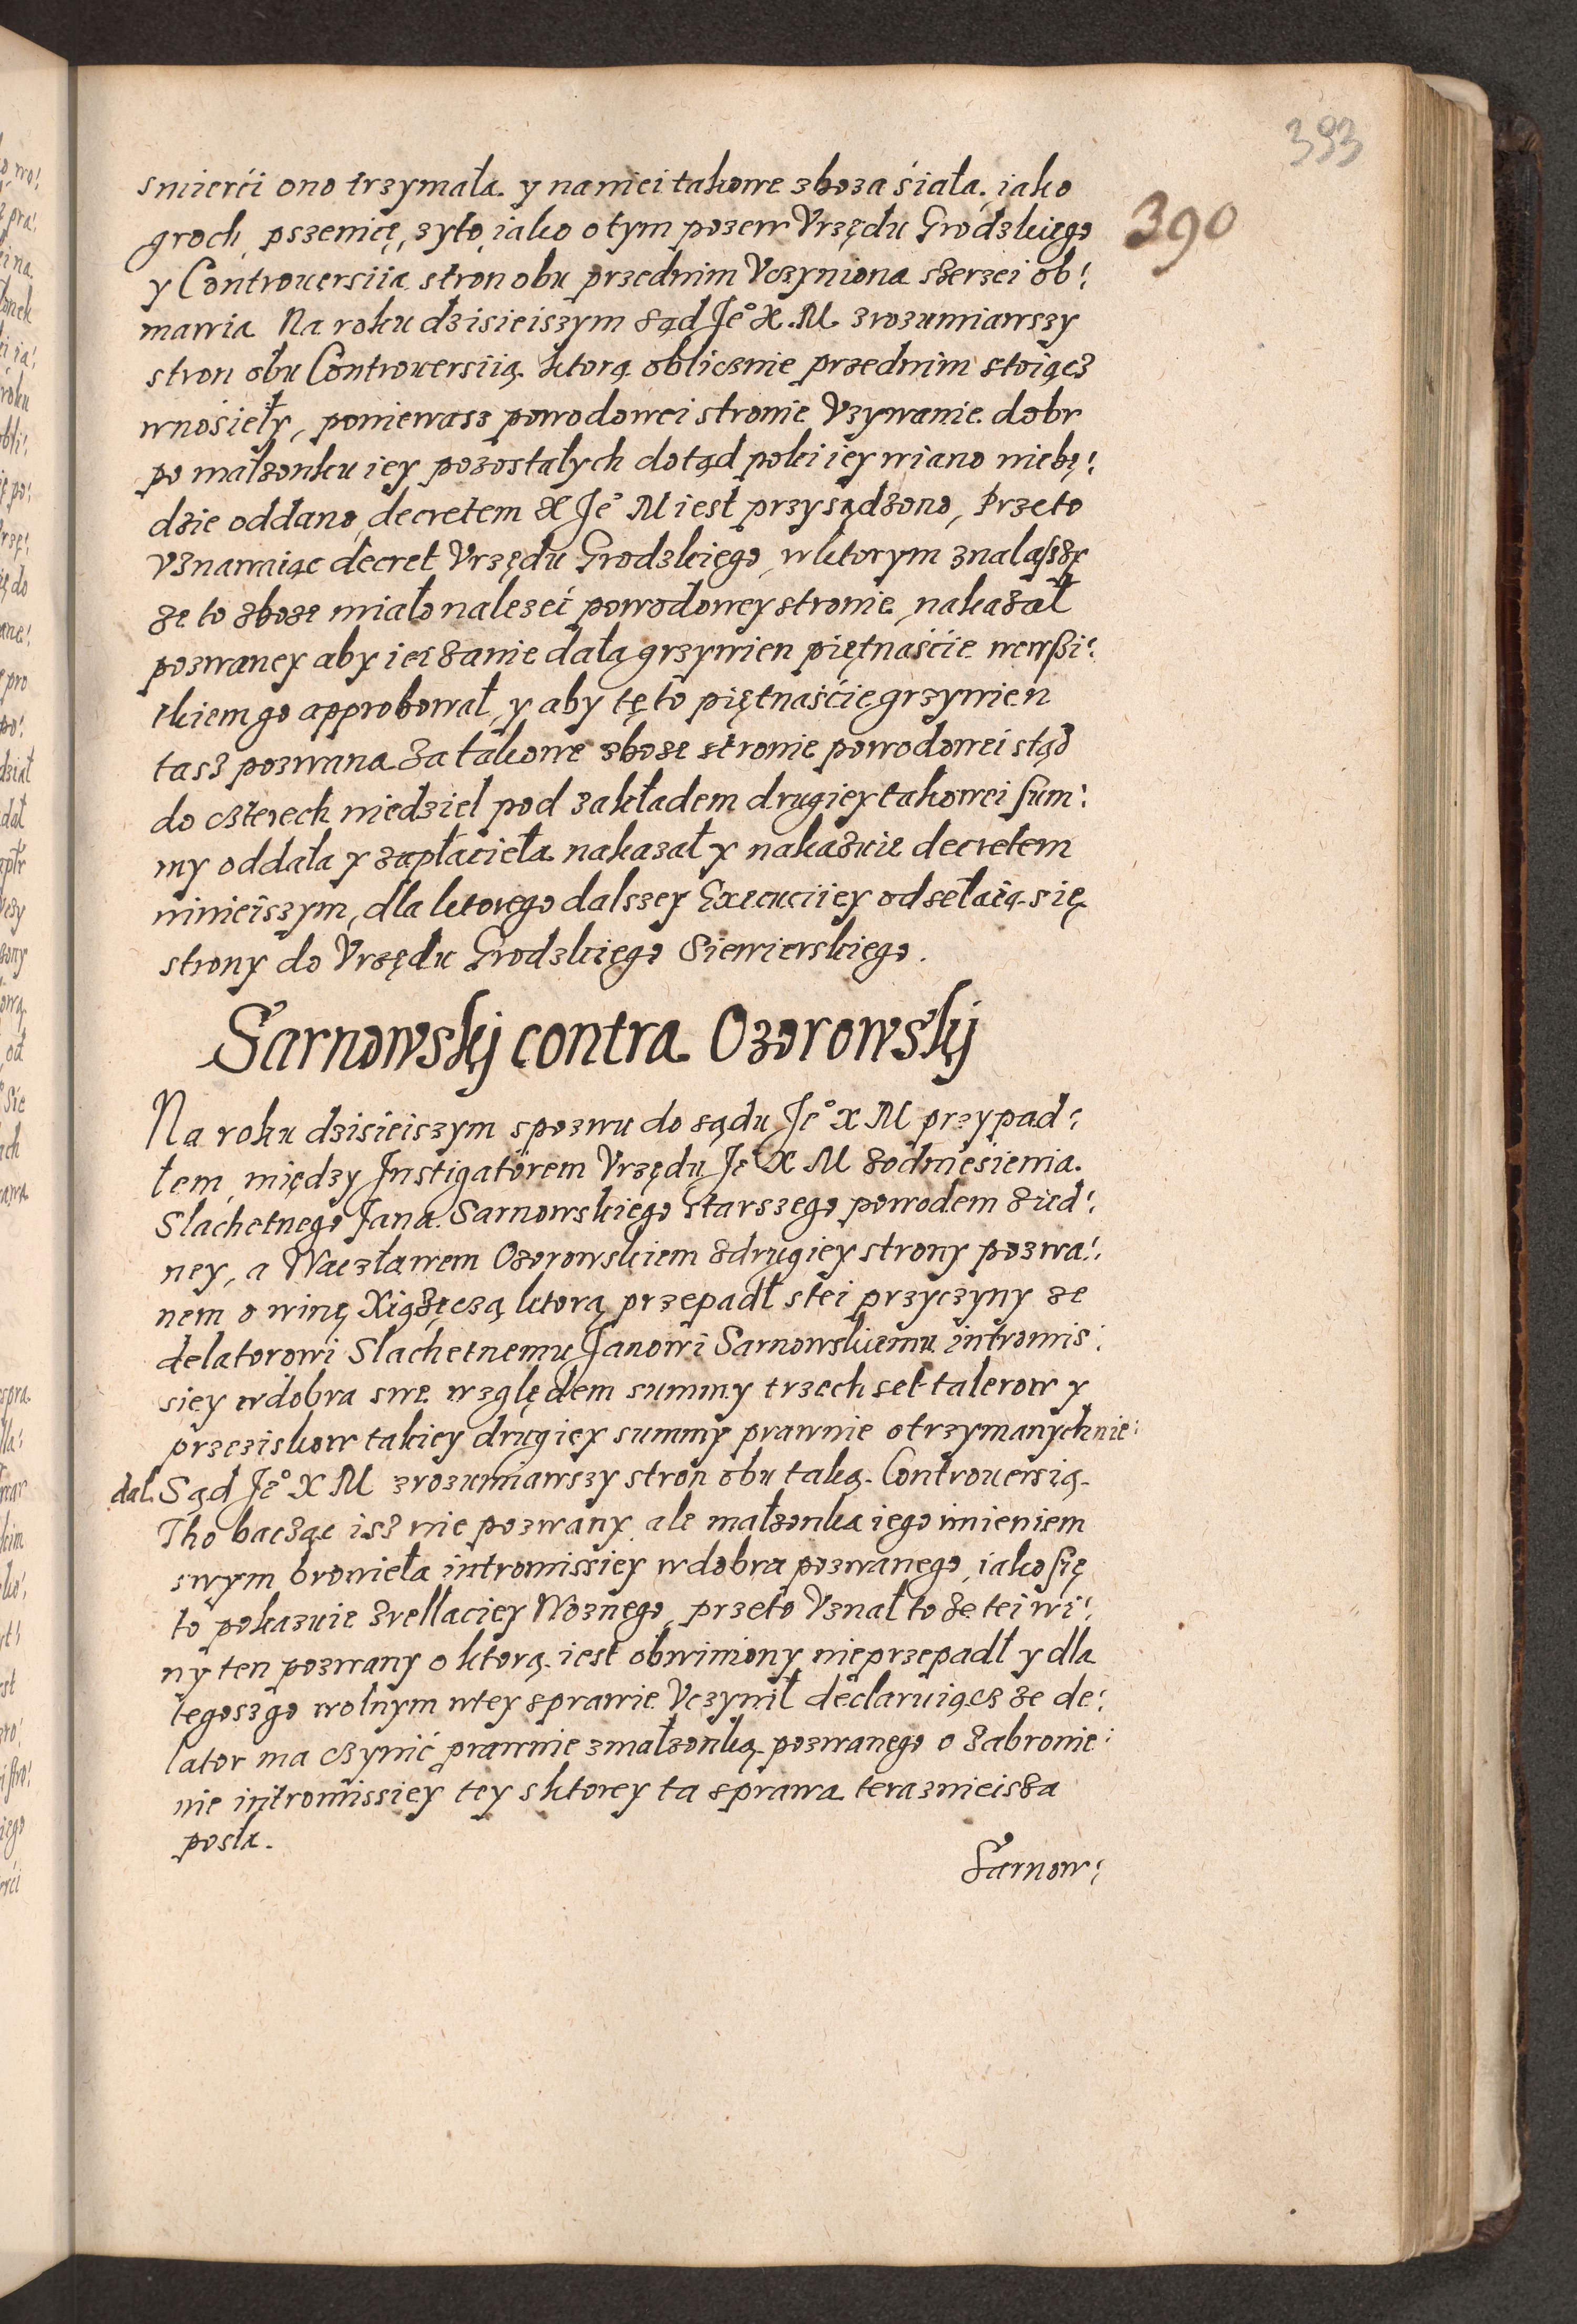 393
390
smierći ono trzymała. y na niei takowe zboza śiała, iako
groch, pszenicę, zyto, iako o tym pozew Vrzędu Grodzkięgo
y Controuersiia stron obu przednim Vczyniona szerzei ob:
mawia Na roku dzisieiszym sąd Je° X. M. zrozumiawszy
stron obu Controuersiią. ktorą oblicznie przednim stoiącz
wnośieły, poniewasz powodowei stronie Vzywanie dobr
po małzonku iey pozostałych dotąd poki iey wiano niebę:
dzie oddano, decretem X Je° M iest przysądzono, Przeto
vznawaiąc decret Vrzędu Grodzkięgo, w ktorym znalaszszy
ze to zboze miało nalezeć powodowey stronie, nakazał
pozwaney aby iei zanie dała grzywien piętnaśćie wewszi:
tkiem go approbował, y aby tę to piętnaśćie grzywien
tasz pozwana za takowe zboze stronie powodowei stąd
do czterech niedziel pod zakładem drugiey takowei sum:
my oddała y zapłacieła nakazał y nakazuie decretem
ninieiszym, dla ktorego dalszey Executiiey odsełaią się
strony do Vrzędu Grodzkięgo Siewierskiego.
Sarnowskj contra Ozorowskj
Na roku dzisieiszym spozwu do sądu Je° X M przypad:
łem, między Instigatorem Vrzędu Je° X M zodniesienia
Slachetnego Jana Sarnowskiego starszego powodem zied:
ney, a Waczławem Ozorowskiem zdrugiey strony pozwa:
nem o winę Xiązęczą ktorą przepadł stei przyczyny ze
delatorowi Slachetnemu Janowi Sarnowskiemu intromis:
siey wdobra swe względem summy trzech set talerow y
przeziskow takiey drugiey summy prawnie otrzymanych nie:
dal. Sąd Je° X M zrozumiawszy stron obu taką Controuersią
Tho bacząc isz nie pozwany ale małzonka iego imieniem
swym bronieła intromissiey wdobra pozwanego, iako się
to pokazuie zrellaciey Woznego, przeto Vznał to ze tei wi:
ny ten pozwany o ktorą iest obwiniony nieprzepadł y dla
tegoszgo wolnym wtey sprawie Vczynił declaruiącz ze de:
lator ma czynić prawnie zmałzonką pozwanego o zabronie:
nie intromissiey tey sktorey ta sprawa teraznieisza
posła.
Sarnow: